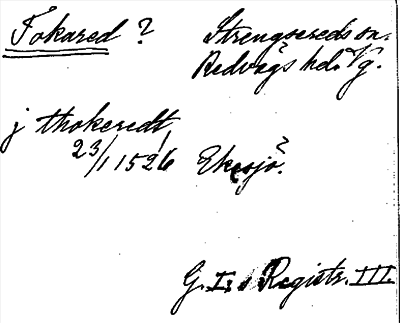 Tokared ? Strengsereds sn.
Redvägs hd. Vg.
j thokeredt
23/1 1526 Ekesjö?
G. I:s Registr. III.